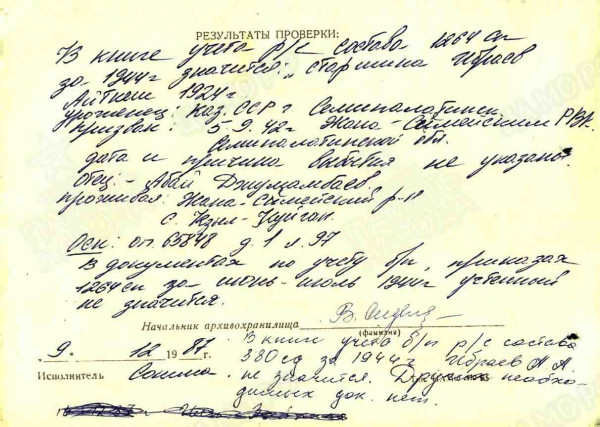 РЕЗУЛЬТАТЫ ПРОВЕРКИ:
В книге учета р/с состава 1264 сп
за 1944г значится: „старшина Ибраев
Айткаш 1924г
уроженец: Каз. ССР г Семипалатинск
призван: 5-9-42г Жана-Семейским РВК
Семипалатинской обл.
дата и причина выбытия не указаны.
Отец - Абай Джумамбаев
проживал: Жана-Семейский р-н
с. Кзыл-
Осн: оп. 65848 д. 1 л. 97
В документах по учету б/п, приказах
1264 сп за июнь-июль 1944г
не значится.
Начальник архивохранилища
(фамилия)
9. 12 1987 г.
В книге учета б/п р/с состава
380 сд за 1944г Ибраев А. А.
Исполнитель
не значится. Других необхо-
димых док. нет.